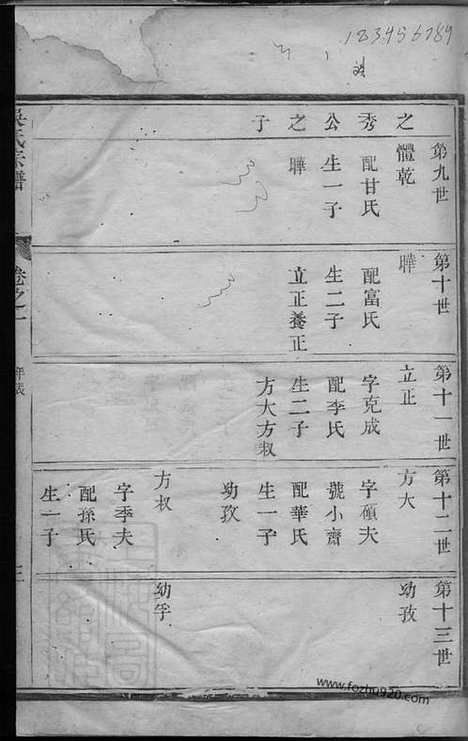 183456789
吳氏宗譜
卷之一
世表
三
第九世
體乾
配甘氏
生一子
聯
之
秀
公
之
子
第十世
聯
配富氏
生二子
立正養正
第十一世
立正
字克成
配李氏
生二子
方大方叔
第十二世
方大
字碩夫
號小齋
配華氏
生一子
幼孜
方叔
字季夫
配孫氏
生一子
第十三世
幼孜
幼孚
www.fozhu920.com